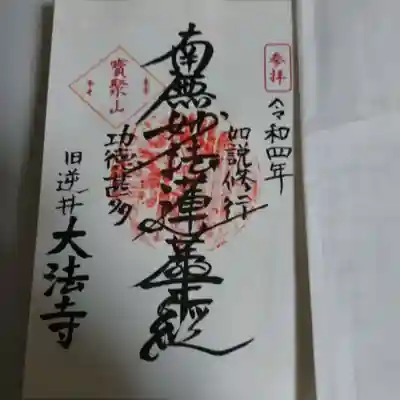 参拝
令和四年
如説修行
南無妙法蓮華経
功徳甚多
寳聚山
旧逆井
大法寺